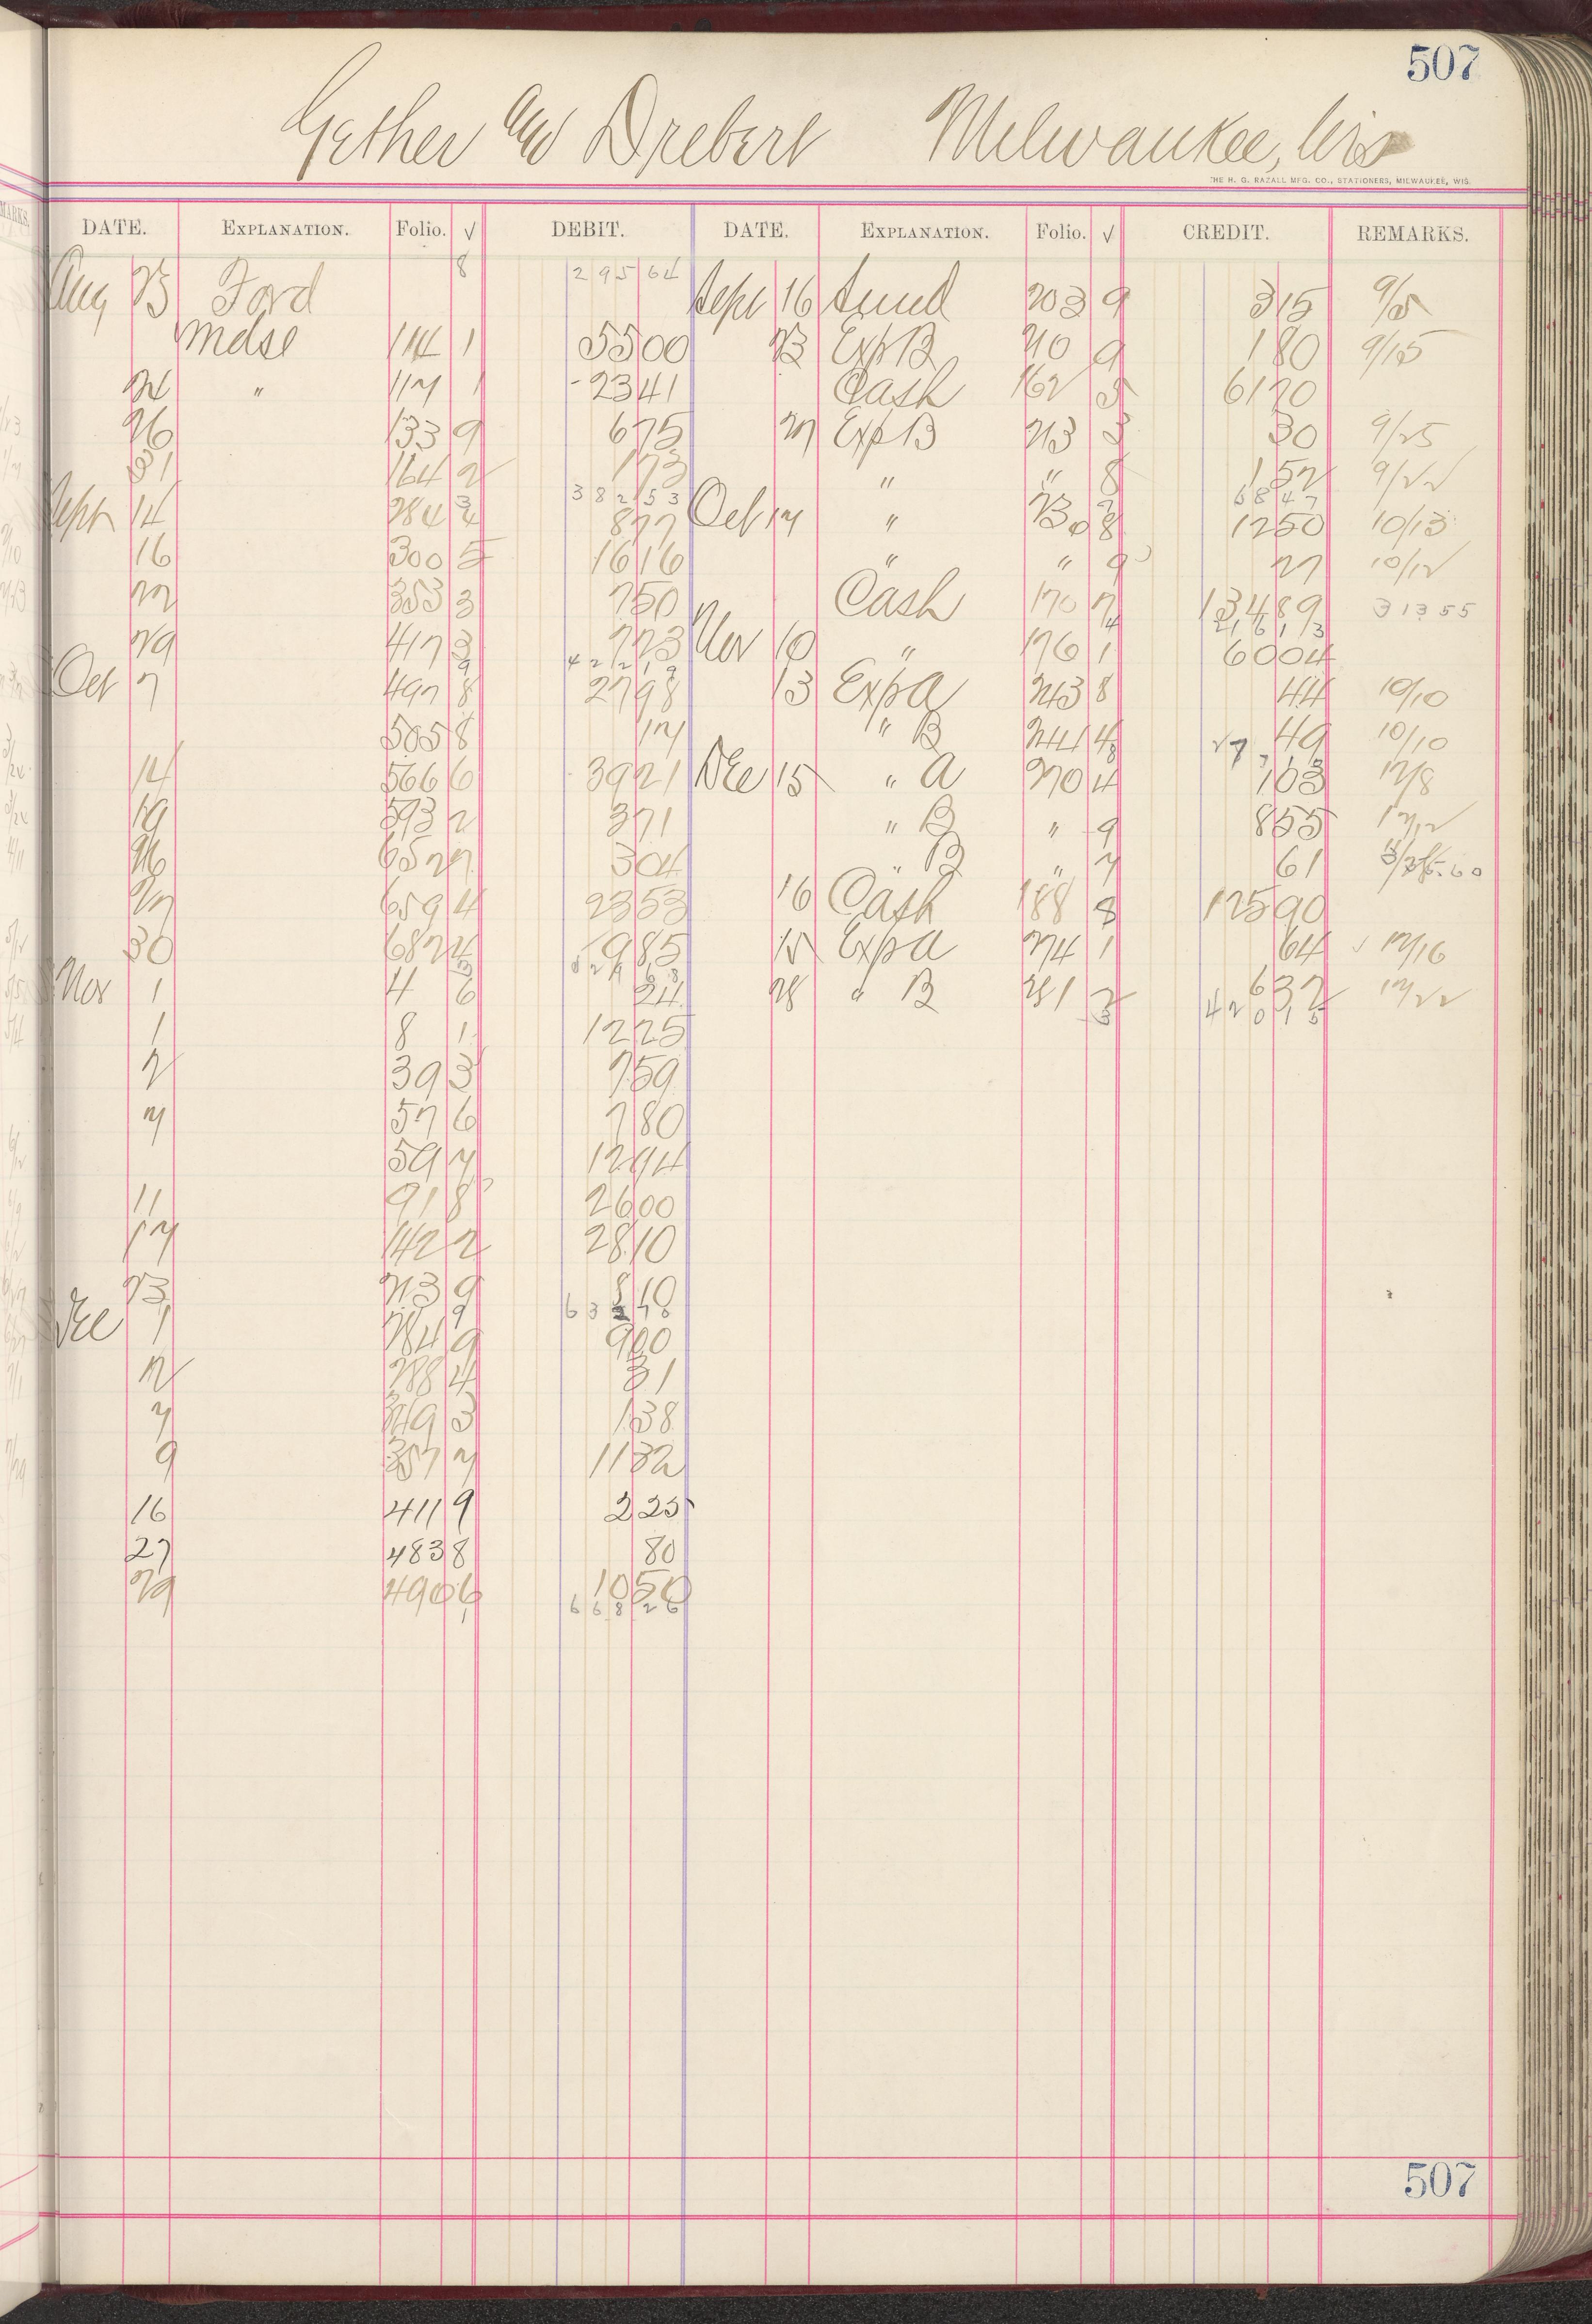 507
Gether and Drebert Milwaukee, Wis
THE H. G. RAZALL MFG. CO., STATIONERS, MILWAUKEE, WIS.
DATE. EXPLANATION. Folio. √ DEBIT. DATE. EXPLANATION. Folio. √ CREDIT. REMARKS.
Aug 23 Ford 8 295 64 Sept 16 203 9 3 15
Mdse 114 1 55 00 23 Exp B 210 9 1 80 9/15
24 " 117 1 23 41 Cash 162 5 61 70
26 133 9 6 75 27 Exp B 213 3 30 9/25
31 164 2 1 73 " " 8 1 52 9/22
382 53 68 47
Sept 14 284 4 8 77 Oct 17 " 230 8 12 50 10/13
16 300 5 16 16 " " 9 27 10/12
22 353 3 7 50 Cash 170 7 134 89 313 55
29 417 3 7 73 Nov 10 " 176 1 60 04
422 19 216 13
Oct 7 497 8 27 98 13 Exp A 243 8 44 10/10
505 8 17 " B 244 4 49 10/10
14 566 6 39 21 Dec 15 " A 270 4 1 03 12/8
19 593 2 3 71 " B " 9 8 55 12/12
26 652 7 3 04 " B " 7 61
27 659 4 23 53 16 Cash 188 8 125 90
30 687 4 9 85 15 Exp A 274 1 64 12/16
Nov 1 4 6 24 28 " B 281 2 6 32 12/22
420 15
1 8 1 12 25
2 39 3 7 59
7 57 6 7 80
59 7 12 94
11 91 8 26 00
17 142 2 28 10
23 213 9 8 10
Dec 1 284 9 9 00
2 288 4 31
7 349 3 1 38
9 357 7 11 32
16 411 9 2 25
27 483 8 80
29 490 6 10 50
668 26
507